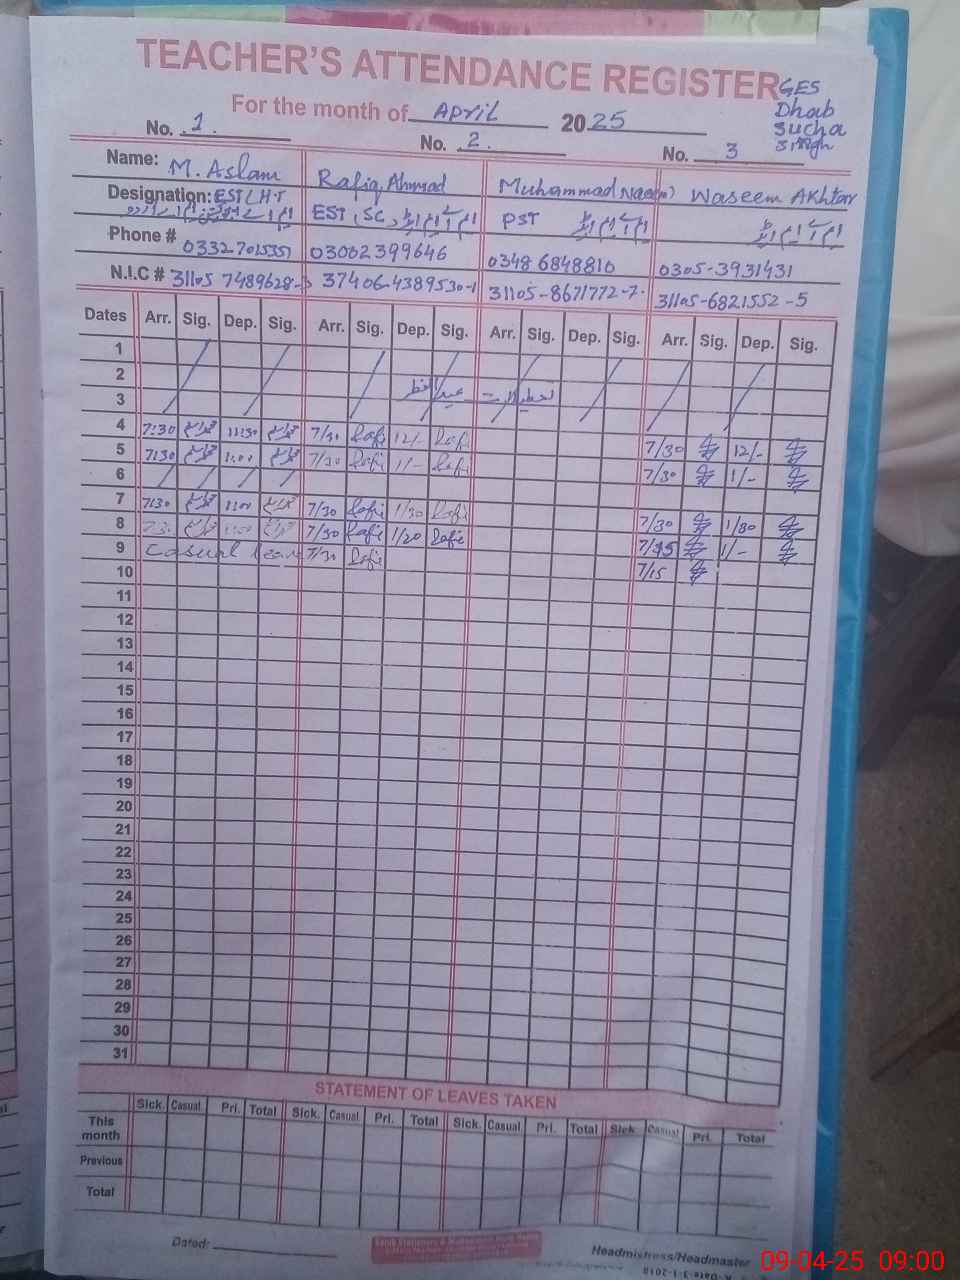 TEACHER'S ATTENDANCE REGISTER
GES
Dhab
Sucha
Singh
For the month of April 2025
No. 1. No. 2. No. 3
Name: M. Aslam Rafiq Ahmad Muhammad Naeem Waseem Akhtar
Designation: EST EST (SC) PST
Phone # 0332-7015351 03002399646 0348 6848810 0305-3931431
N.I.C # 31105 7489628-3 37406-4389530-1 31105-8671772-7 31105-6821552-5
Dates Arr. Sig. Dep. Sig. Arr. Sig. Dep. Sig. Arr. Sig. Dep. Sig. Arr. Sig. Dep. Sig.
1
2
3 عید الفطر
4 7:30 11:30 7/30 Rafi 12/- Rafi 7/30 12/-
5 7:30 1:00 7/30 Rafi 1/- Rafi 7/30 1/-
6
7 7:30 1:00 7/30 Rafi 1/30 Rafi 7/30 1/30
8 7:30 1:00 7/30 Rafi 1/20 Rafi 7/15 1/-
9 Casual leave 7/30 Rafi 7/15
10
11
12
13
14
15
16
17
18
19
20
21
22
23
24
25
26
27
28
29
30
31
STATEMENT OF LEAVES TAKEN
Sick. Casual Pri. Total Sick. Casual Pri. Total Sick. Casual Pri. Total Sick. Casual Pri. Total
This month
Previous
Total
Dated:
Headmistress/Headmaster
09-04-25 09:00